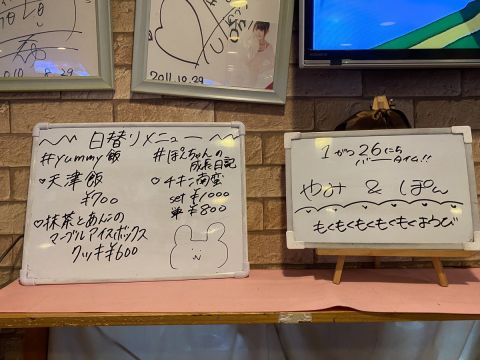 日替りメニュー
#yummy飯
♡天津飯
¥700
♡抹茶とあんこの
マーブルアイスボックス
クッキー¥600
#ぽんちゃんの
成長日記
♡チキン南蛮
set ¥1000
単 ¥800
1がつ26にち
バータイム!!
やみ & ぽん
もくもくもくもくようび
2011.10.29